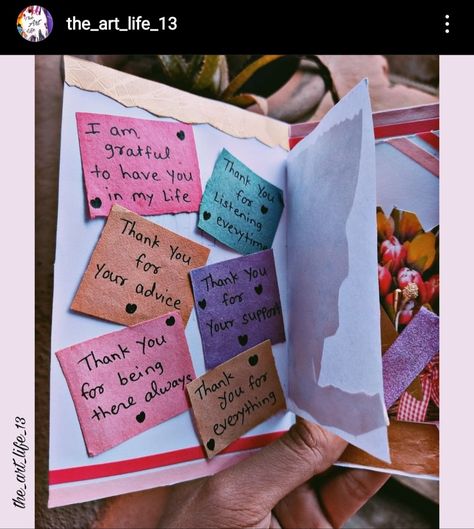 the_art_life_13
I am
gratful
to have you
in my life
Thank You
for
Listening
everytime
Thank You
for
Your advice
Thank You
for
Your support
Thank You
for being
there always
Thank
You for
everything
the_art_life_13